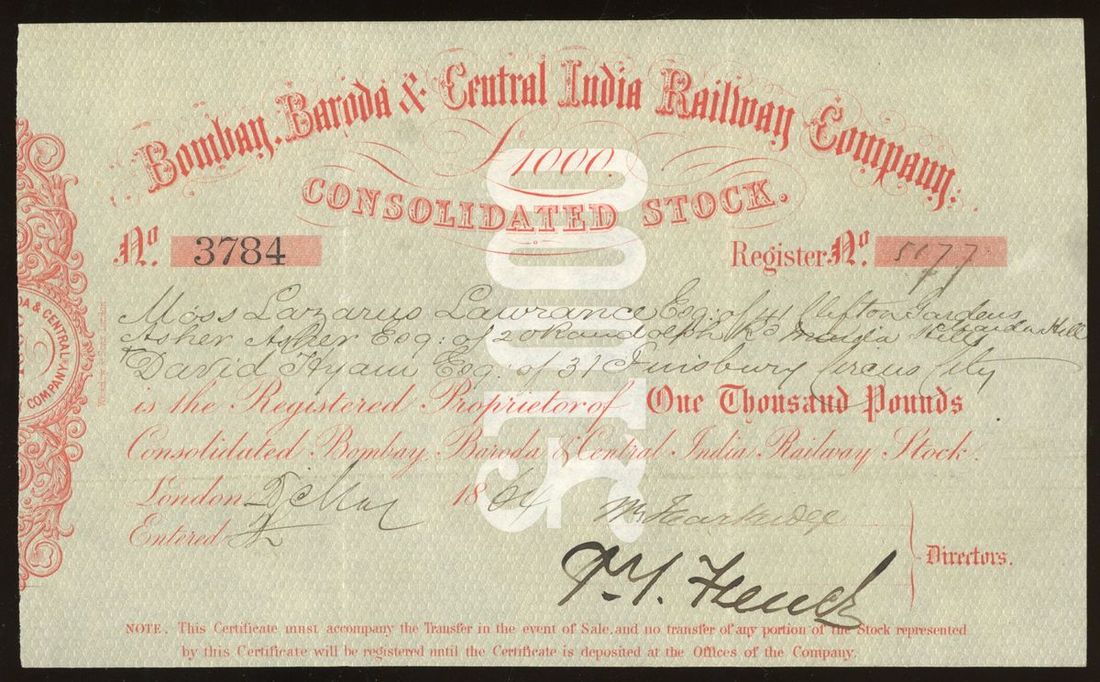 Bombay, Baroda & Central India Railway Company.
£1000.
CONSOLIDATED STOCK.
£1000
No. 3784
Register No. 5177
Moss Lazarus Lawrance Esq: of 41 Clifton Gardens Maida Hill
Asher Asher Esq: of 20 Randolph Rd Maida Hill
David Hyam Esq. of 31 Finsbury Circus City
is the Registered Proprietor of One Thousand Pounds
Consolidated Bombay, Baroda & Central India Railway Stock.
London 18 64
Entered
Directors.
NOTE. This Certificate must accompany the Transfer in the event of Sale, and no transfer of any portion of the Stock represented
by this Certificate will be registered until the Certificate is deposited at the Offices of the Company.
DA & CENTRAL
COMPANY